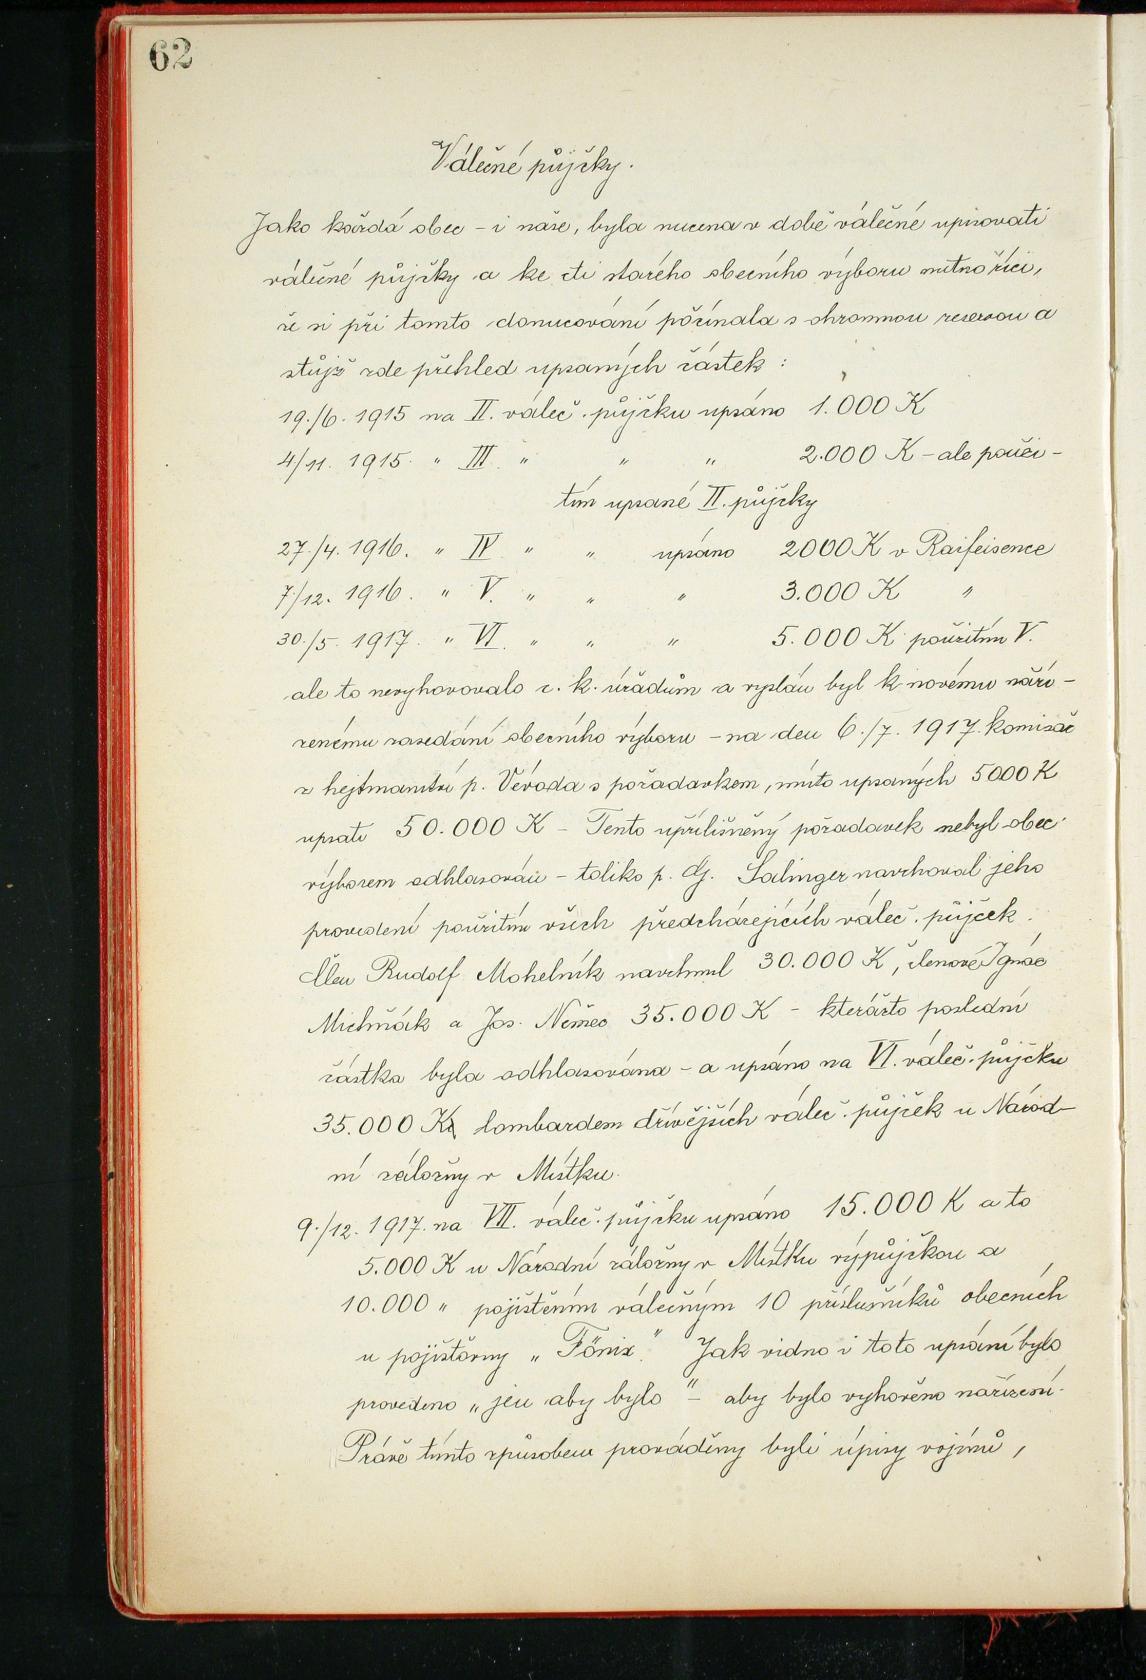 62
Válečné půjčky.
Jako každá obec - i naše, byla nucena v době válečné upisovati
válečné půjčky a ke cti starého obecního výboru nutno říci,
že si při tomto donucování počínala s ohromnou reservou a
stůjž zde přehled upsaných částek :
19./6. 1915 na II. váleč. půjčku upsáno 1.000 K
4/11. 1915. " III. " " " 2.000 K - ale použi-
tím upsané II. půjčky
27./4. 1916. " IV " " upsáno 2000 K v Raifeisence
7./12. 1916. " V. " " " 3.000 K "
30./5. 1917. " VI. " " " 5.000 K použitím V.
ale to nevyhovovalo c. k. úřadům a vyslán byl k novému naří-
zenému zasedání obecního výboru - na den 6./7. 1917. komisař
z hejtmanství p. Vévoda s požadavkem, místo upsaných 5000 K
upsati 50.000 K - Tento upřílišněný požadavek nebyl obec.
výborem odhlasován - toliko p. Salinger navrhoval jeho
provedení použitím všech předcházejících váleč. půjček.
Člen Rudolf Mohelník navrhnul 30.000 K, členové Ignác
Michňák a Jos. Němec 35.000 K - kterážto poslední
částka byla odhlasována - a upsáno na VI. váleč. půjčku
35.000 K lombardem dřívějších váleč. půjček u Národ-
ní záložny v Místku.
9./12. 1917. na VII. váleč. půjčku upsáno 15.000 K a to
5.000 K u Národní záložny v Místku výpůjčkou a
10.000 " pojištěním válečným 10 příslušníků obecních
u pojišťovny „Fönix." Jak vidno i toto upsání bylo
provedeno „jen aby bylo" - aby bylo vyhověno nařízení.
Právě tímto způsobem prováděny byli úpisy vojínů,